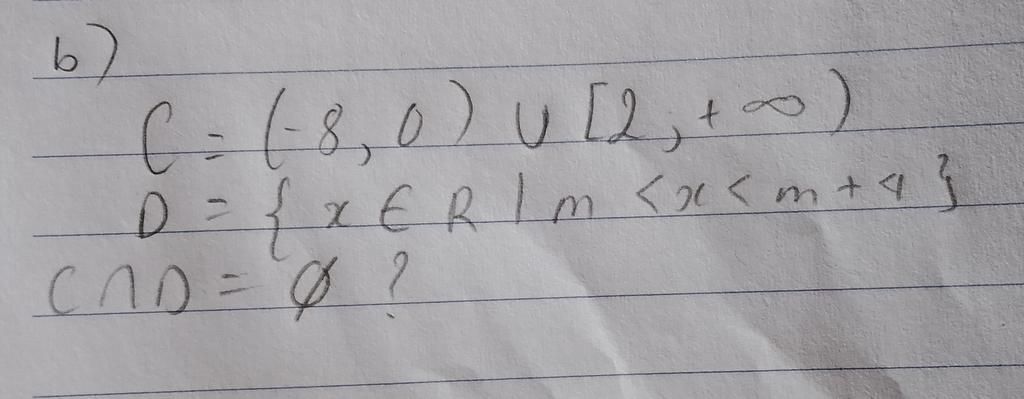 b)
C = (-8, 0) ∪ [2, +∞)
D = { x ∈ R | m < x < m + 9 }
C ∩ D = ∅ ?